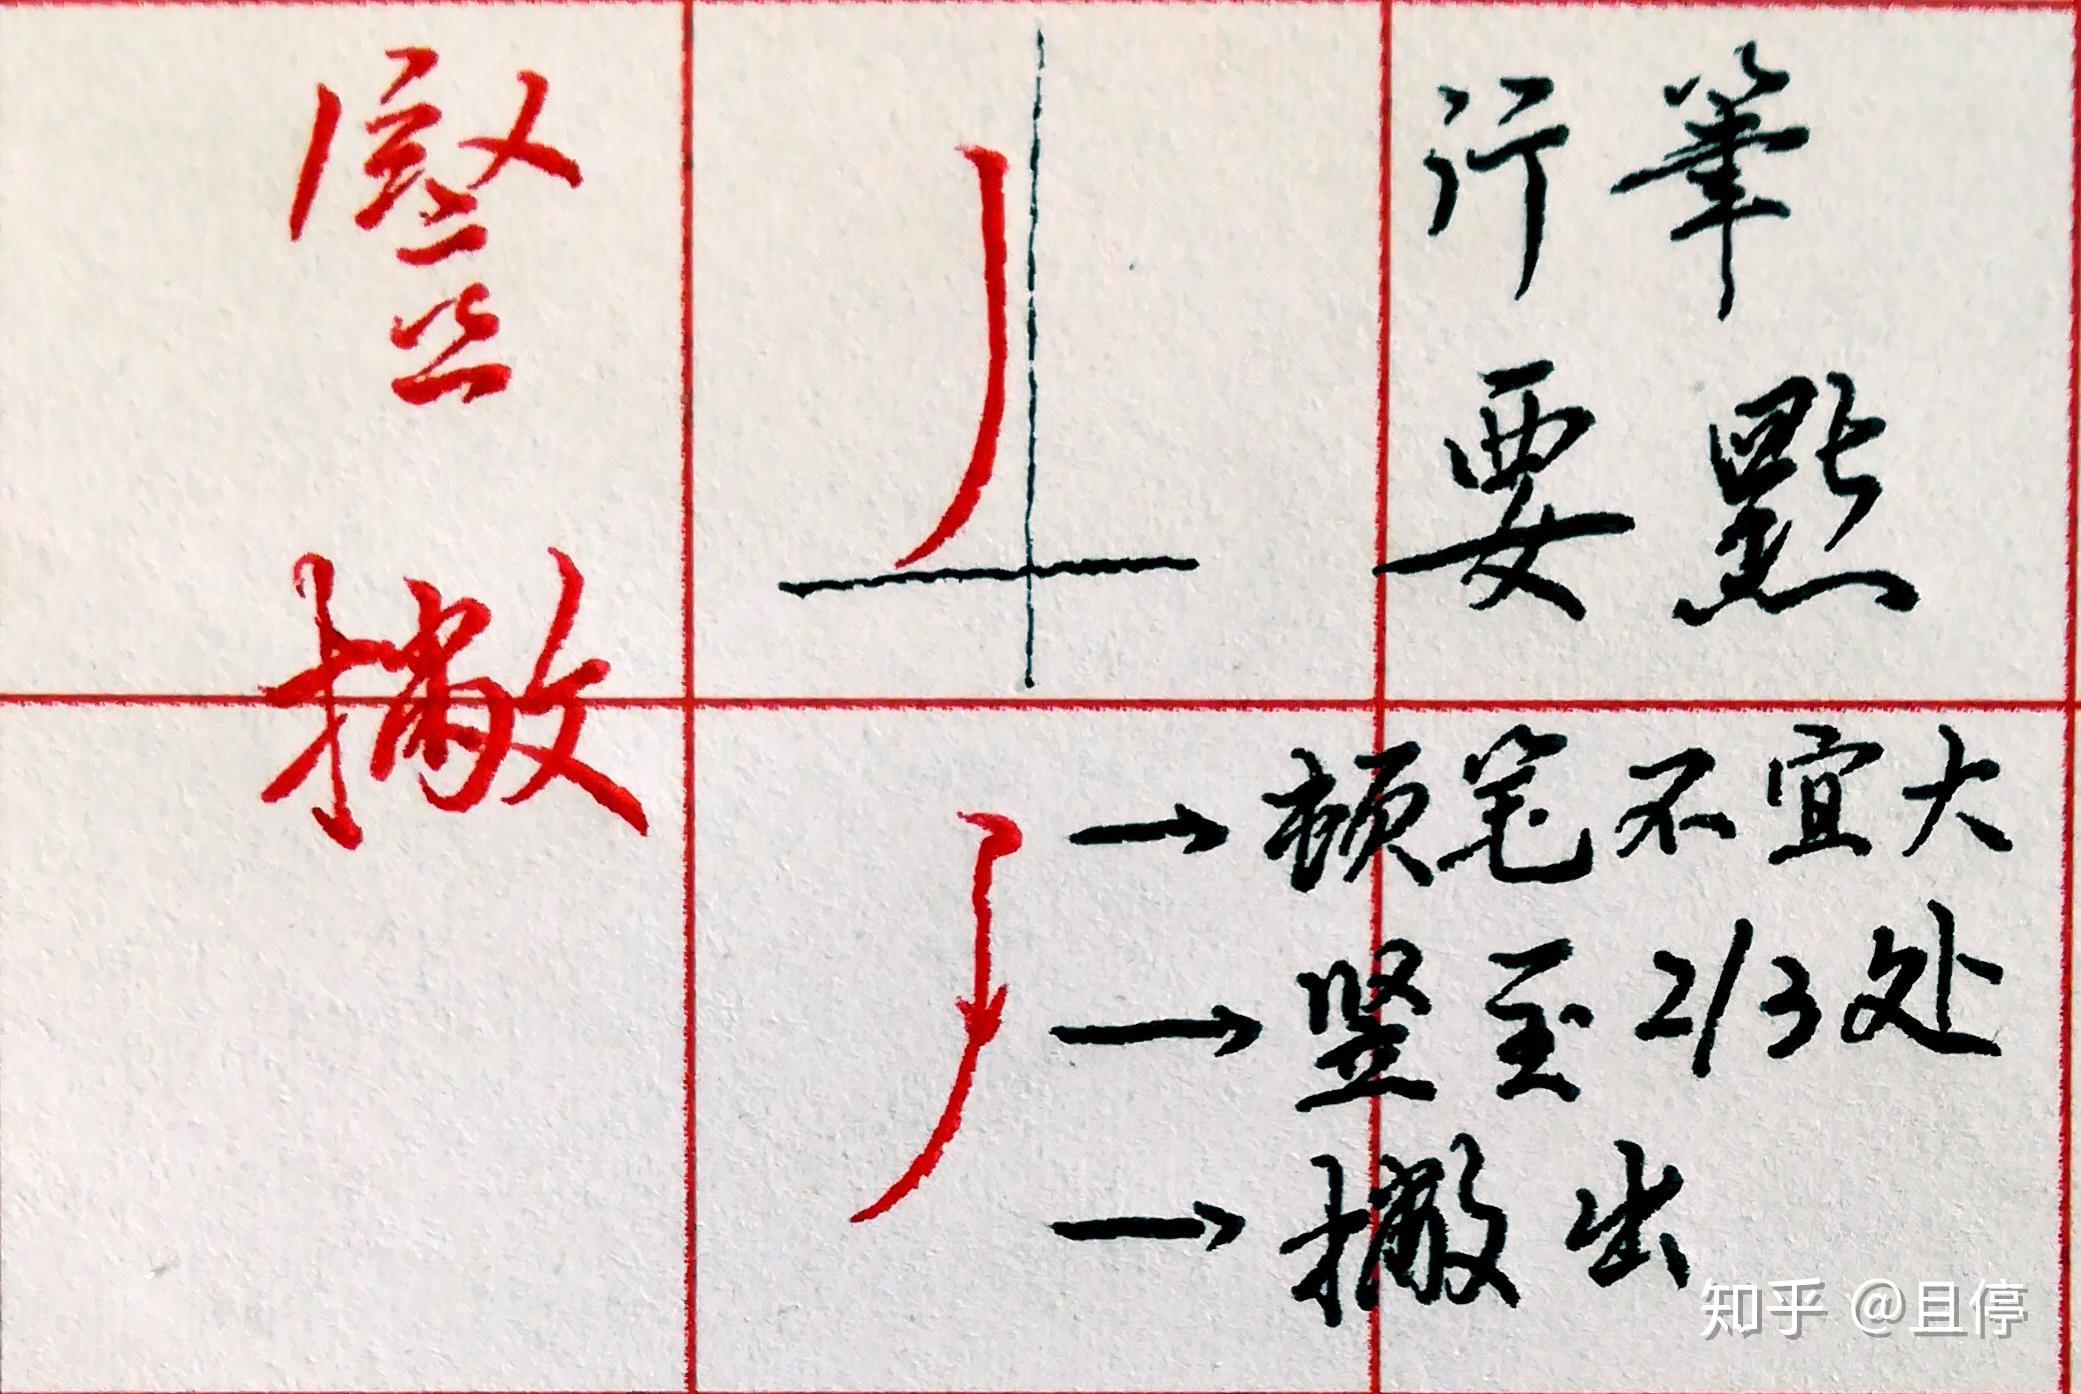 豎撇
行筆
要點
頓笔不宜大
竖至2/3处
撇出
知乎 @且停